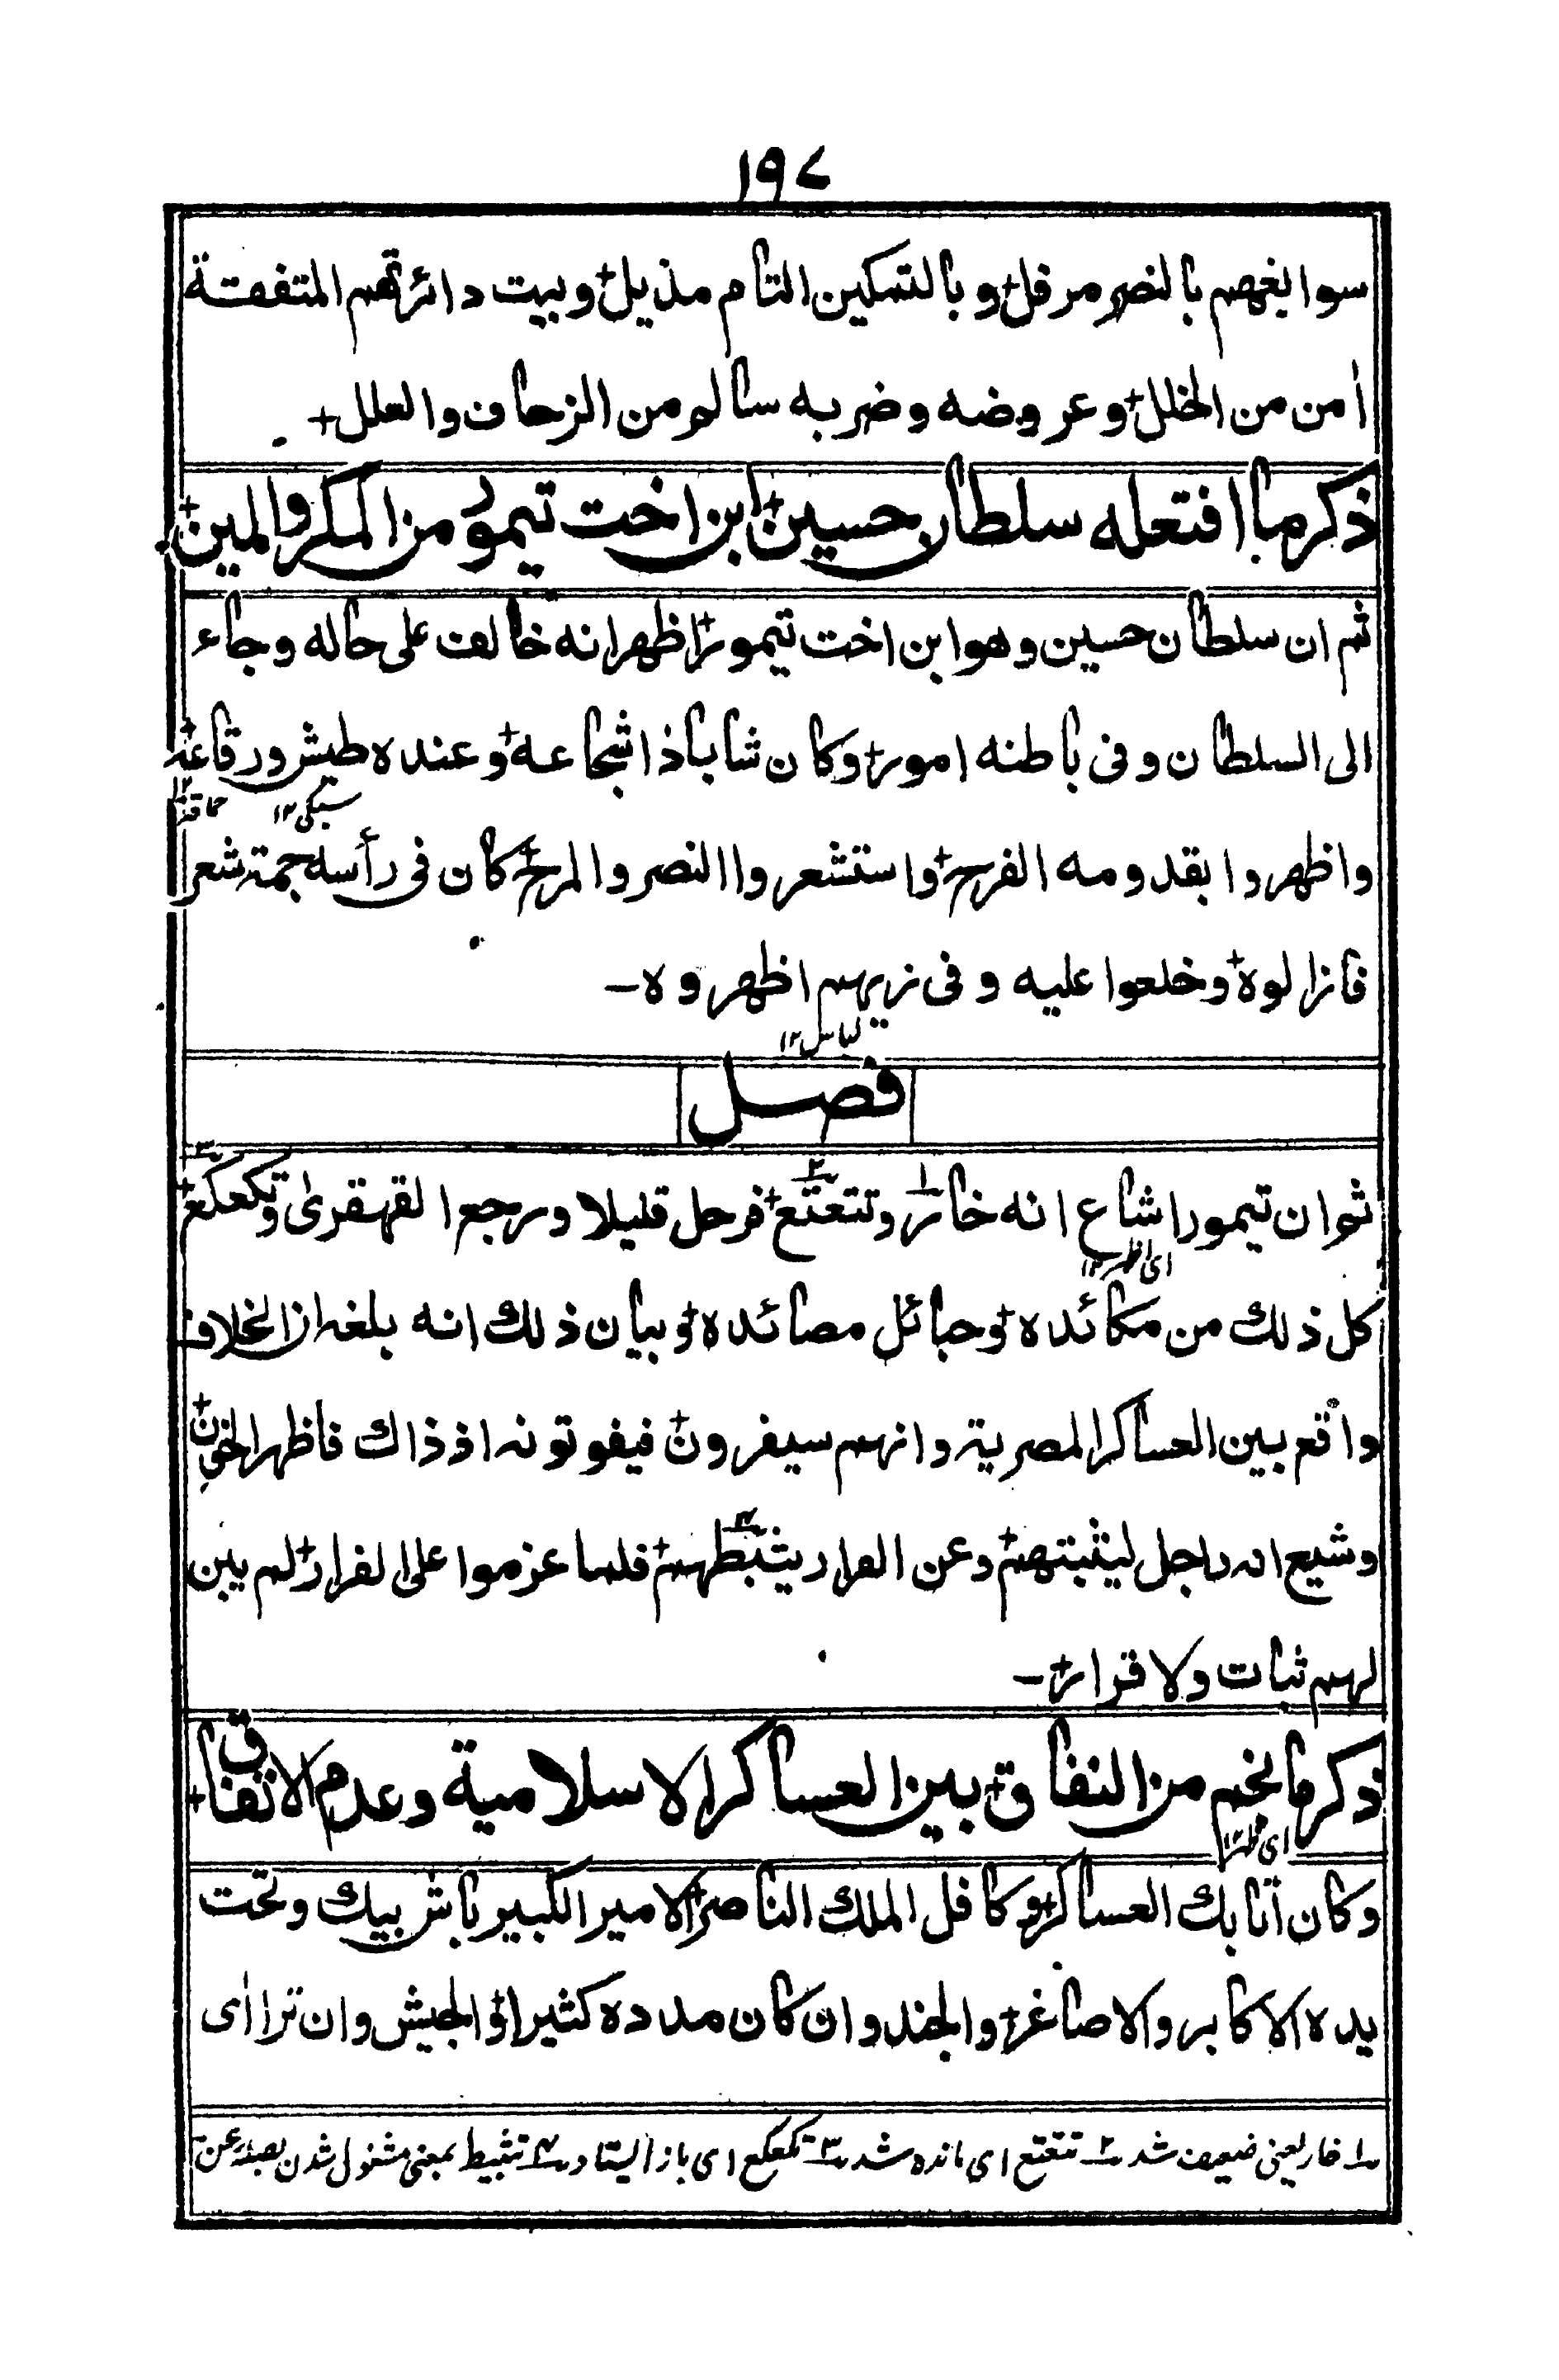 ١٩٧
سوابغهم بالنصر مرفل+ و بالتمكين التام مذيل+ وبيت دائرتهم المتفقة
اٰمن من الخلل+ وعروضه وضربه سالم من الزحاف والعلل+
ذكر ما افتعله سلطان حسين+ ابن اخت تيمور من المكر والمين+
ثم ان سلطان حسين وهو ابن اخت تيمور+ اظهر انه خالف على خاله وجاء
الى السلطان وفى باطنه امور+ وكان شابا ذا شجاعة+ وعنده طيش ورقاعة+
سبكى١٢ حماقة١٢
واظهروا بقدومه الفرح+ واستشعروا النصر والمرح+ كان فى رأسه جمة شعر
فازالوه+ وخلعوا عليه و فى زيهم اظهروه -
لباس١٢
فصل
ثم ان تيمور اشاع انه خار١ وتتعتع٢+ فرحل قليلا ورجع القهقرىٰ وتكعكع٣+
اى اظهر١٢
كل ذلك من مكائده+ وحبائل مصائده+ وبيان ذلك انه بلغه ان الخلاف
واقع بين العساكر المصرية وانهم سيفرون+ فيفوتونه اذ ذاك فاظهر الخور+
وشيع انه راحل ليثبتهم+ وعن الفرار يثبطهم٤+ فلما عزموا على الفرار+ لم يبن
لهم ثبات ولا قرار+ -
ذكر ما نجم من النفاق+ بين العساكر الاسلامية وعدم الاتفاق+
اى ظهر١٢
وكان أتابك العساكر+ وكافل الملك الناصر+ الامير الكبير باش بيك وتحت
يده الاكابر والاصاغر+ والجند وان كان مدده كثيرا+ والجيش وان تراأى
١ خار يعنى ضعيف شد ٢ تتعتع اى مانده شد ٣ تكعكع اى باز ايستاد ٤ تثبيط بمعنى مشغول شدن بصله عن